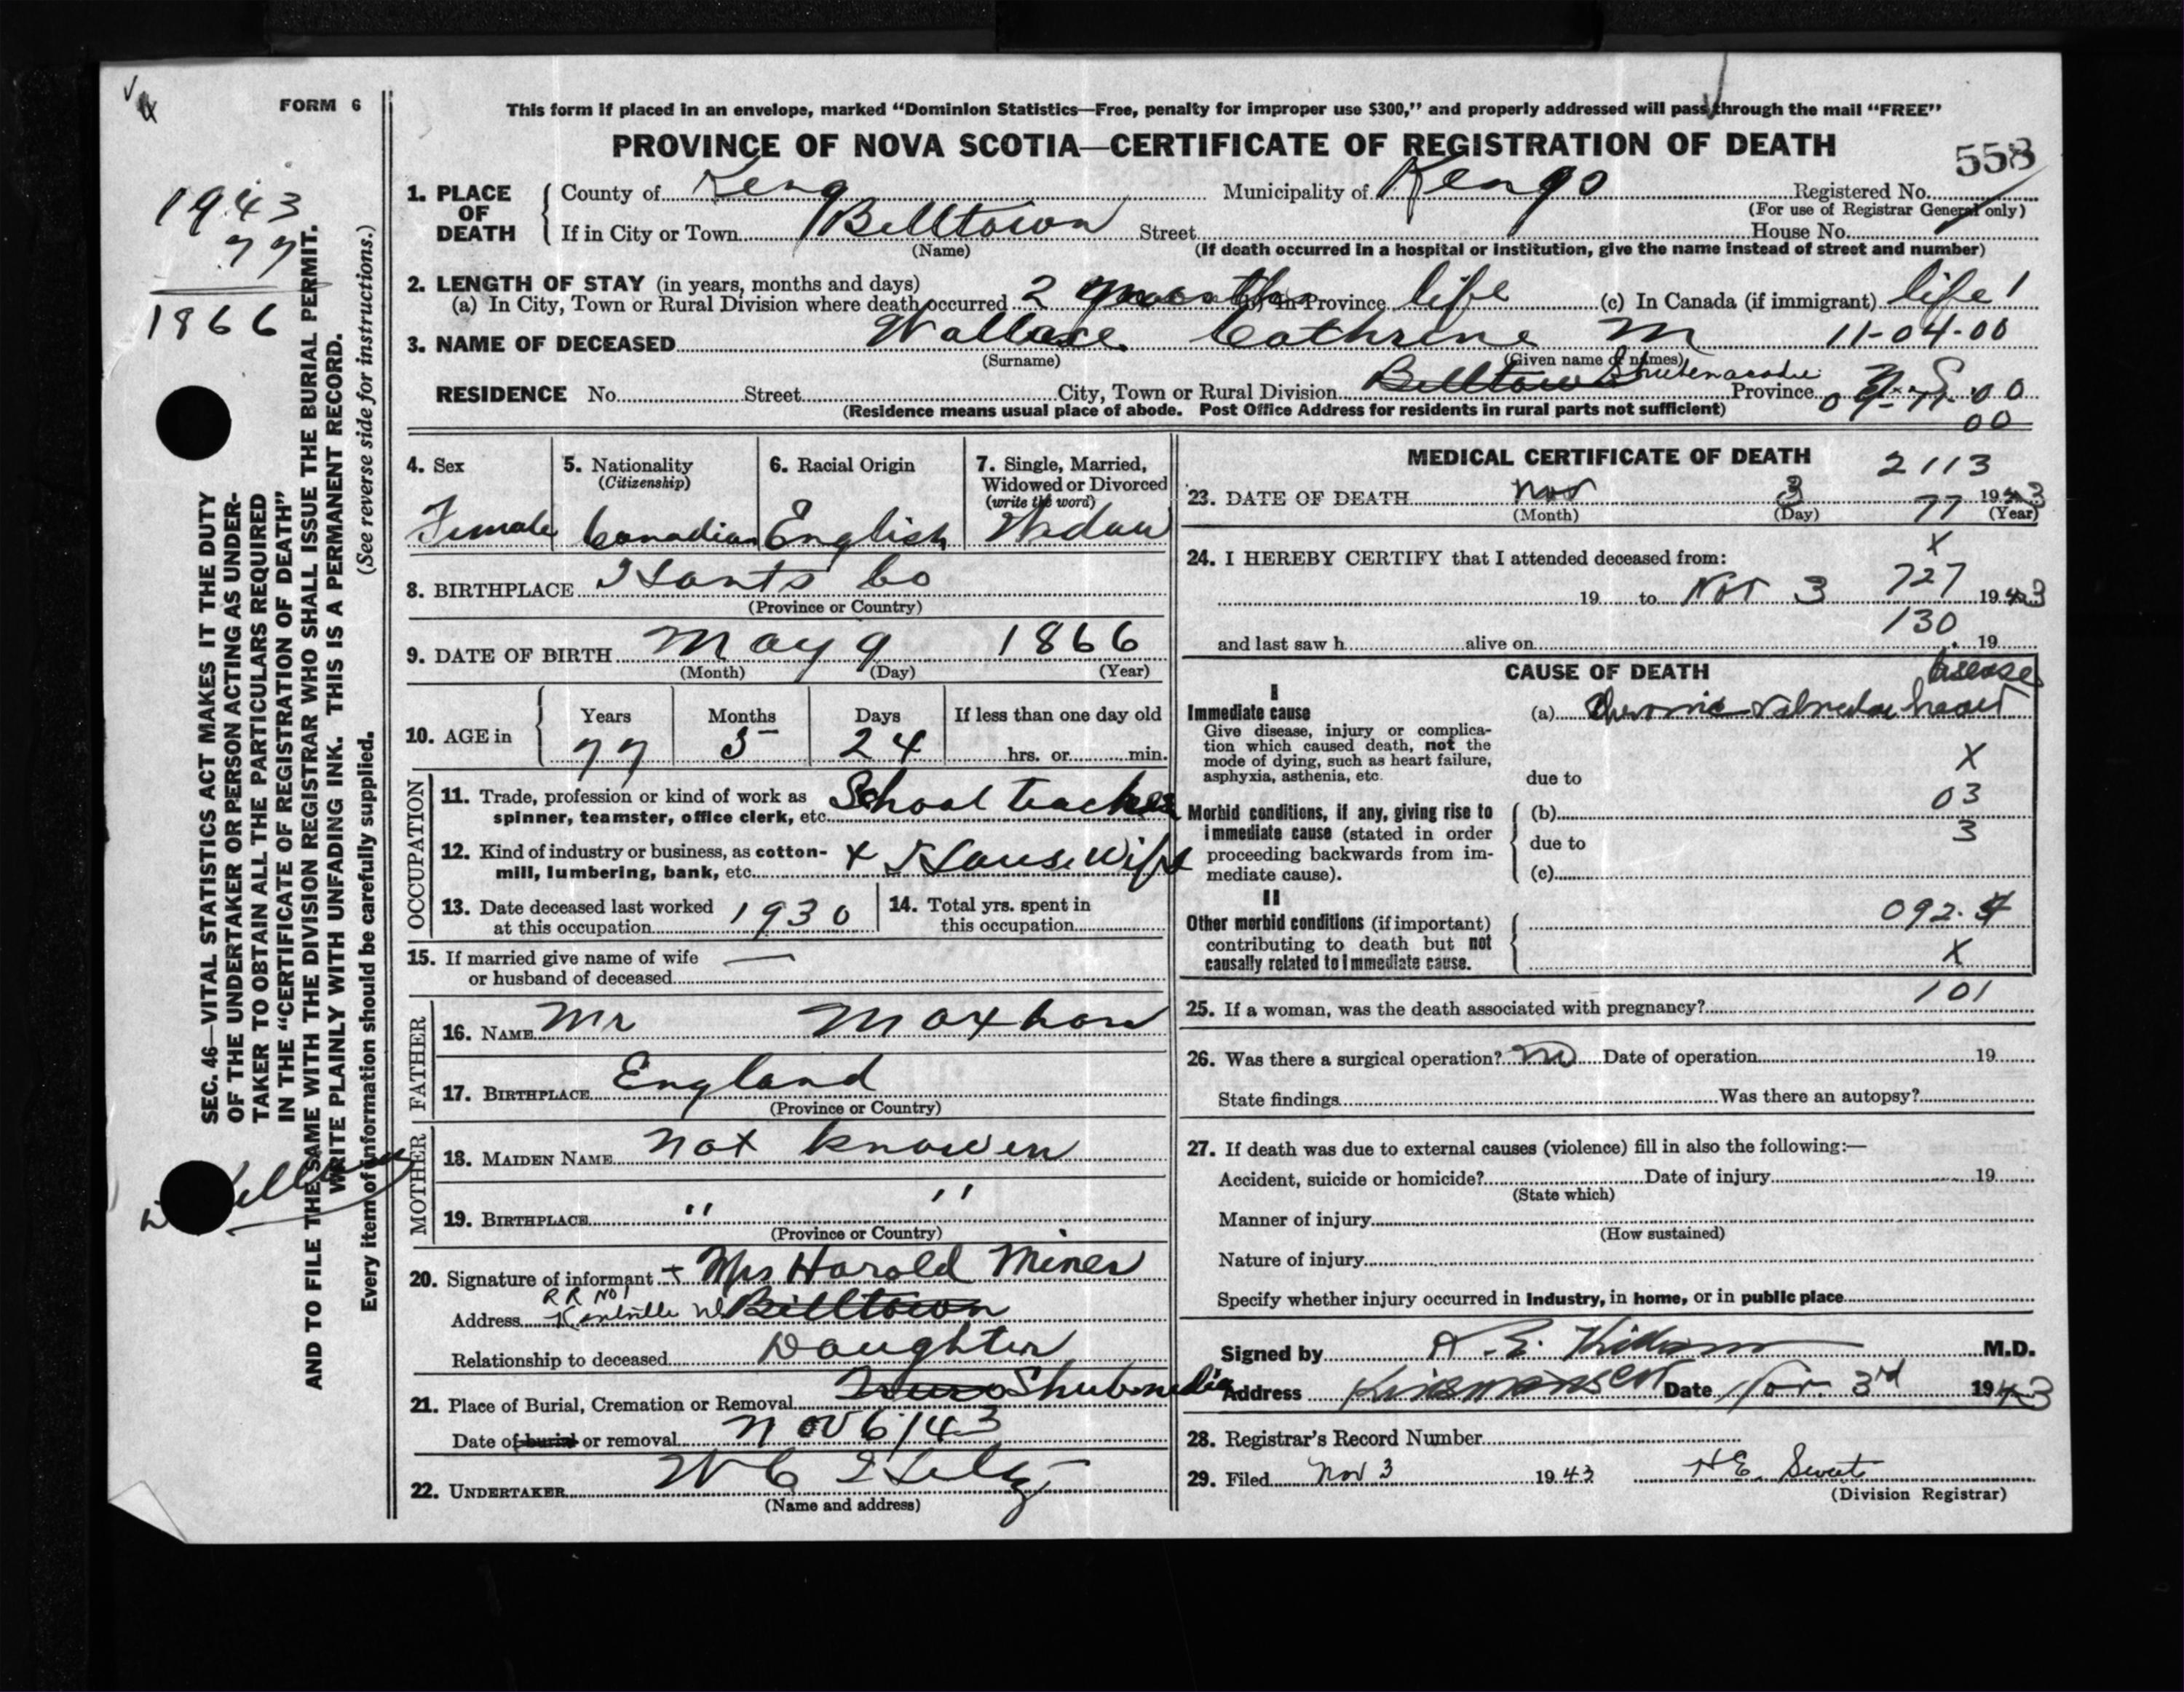 FORM 6
This form if placed in an envelope, marked "Dominion Statistics—Free, penalty for improper use $300," and properly addressed will pass through the mail "FREE"
PROVINCE OF NOVA SCOTIA—CERTIFICATE OF REGISTRATION OF DEATH
558
1943
77
1866
1. PLACE OF DEATH
County of Kings Municipality of Kings Registered No.
(For use of Registrar General only)
If in City or Town Billtown Street House No.
(Name) (If death occurred in a hospital or institution, give the name instead of street and number)
2. LENGTH OF STAY (in years, months and days)
(a) In City, Town or Rural Division where death occurred 2 months (b) In Province life (c) In Canada (if immigrant) life
3. NAME OF DECEASED Wallace Cathrine M 11-04-00
(Surname) (Given name or names)
RESIDENCE No. Street City, Town or Rural Division Billtown Shubenacadie Province N.S.
00
(Residence means usual place of abode. Post Office Address for residents in rural parts not sufficient)
4. Sex
Female
5. Nationality
(Citizenship)
Canadian
6. Racial Origin
English
7. Single, Married,
Widowed or Divorced
(write the word)
Widow
8. BIRTHPLACE Hants Co
(Province or Country)
9. DATE OF BIRTH May 9 1866
(Month) (Day) (Year)
10. AGE in
Years Months Days If less than one day old
77 5 24 hrs. or min.
OCCUPATION
11. Trade, profession or kind of work as School teacher
spinner, teamster, office clerk, etc.
12. Kind of industry or business, as cotton- + House Wife
mill, lumbering, bank, etc.
13. Date deceased last worked
at this occupation 1930
14. Total yrs. spent in
this occupation
15. If married give name of wife —
or husband of deceased
FATHER
16. NAME Mr Moxhow
17. BIRTHPLACE England
(Province or Country)
MOTHER
18. MAIDEN NAME not knowen
19. BIRTHPLACE " "
(Province or Country)
20. Signature of informant + Mrs Harold Miner
R R No 1
Address Kentville Billtown
Relationship to deceased Daughter
21. Place of Burial, Cremation or Removal Truro
Date of burial or removal Nov 6/43
22. UNDERTAKER
(Name and address)
MEDICAL CERTIFICATE OF DEATH
2113
23. DATE OF DEATH Nov 3 1943
(Month) (Day) (Year)
77
X
24. I HEREBY CERTIFY that I attended deceased from:
727
19 to Nov 3 1943
130
and last saw h alive on 19
CAUSE OF DEATH
I
Immediate cause
Give disease, injury or complica-
tion which caused death, not the
mode of dying, such as heart failure,
asphyxia, asthenia, etc.
(a) Chronic valvular heart disease
X
due to
03
Morbid conditions, if any, giving rise to
immediate cause (stated in order
proceeding backwards from im-
mediate cause).
(b)
3
due to
(c)
II
Other morbid conditions (if important)
contributing to death but not
causally related to immediate cause.
092.
X
25. If a woman, was the death associated with pregnancy?
101
26. Was there a surgical operation? no Date of operation 19
State findings Was there an autopsy?
27. If death was due to external causes (violence) fill in also the following:—
Accident, suicide or homicide? Date of injury 19
(State which)
Manner of injury
(How sustained)
Nature of injury
Specify whether injury occurred in industry, in home, or in public place
Signed by M.D.
Address Date Nov. 3rd 1943
28. Registrar's Record Number
29. Filed Nov 3 1943 H E. Sweet
(Division Registrar)
SEC. 46—VITAL STATISTICS ACT MAKES IT THE DUTY
OF THE UNDERTAKER OR PERSON ACTING AS UNDER-
TAKER TO OBTAIN ALL THE PARTICULARS REQUIRED
IN THE "CERTIFICATE OF REGISTRATION OF DEATH"
AND TO FILE THE SAME WITH THE DIVISION REGISTRAR WHO SHALL ISSUE THE BURIAL PERMIT.
WRITE PLAINLY WITH UNFADING INK. THIS IS A PERMANENT RECORD.
Every item of information should be carefully supplied. (See reverse side for instructions.)